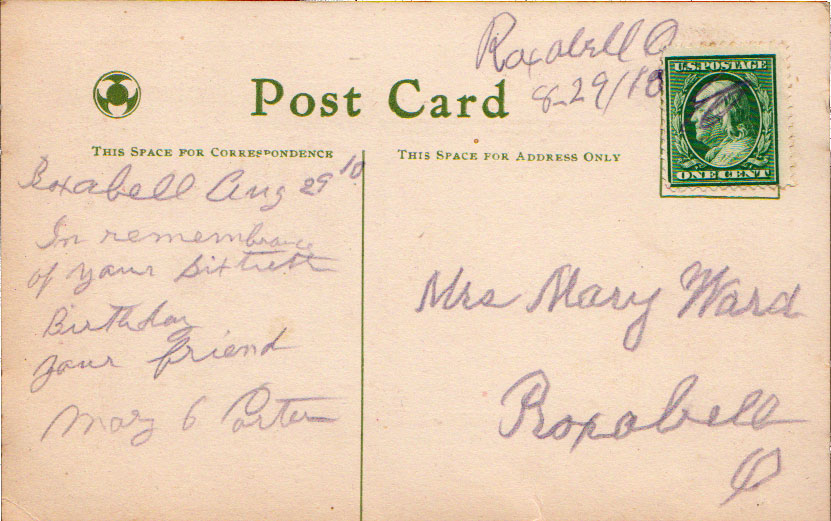 Roxabell O
8-29/10
U.S. POSTAGE
ONE CENT
Post Card
THIS SPACE FOR CORRESPONDENCE
THIS SPACE FOR ADDRESS ONLY
Roxabell Aug 29 10
In remembrance
of your Sixtieth
Birthday
your friend
May 6 Porter
Mrs Mary Ward
Roxabell
O